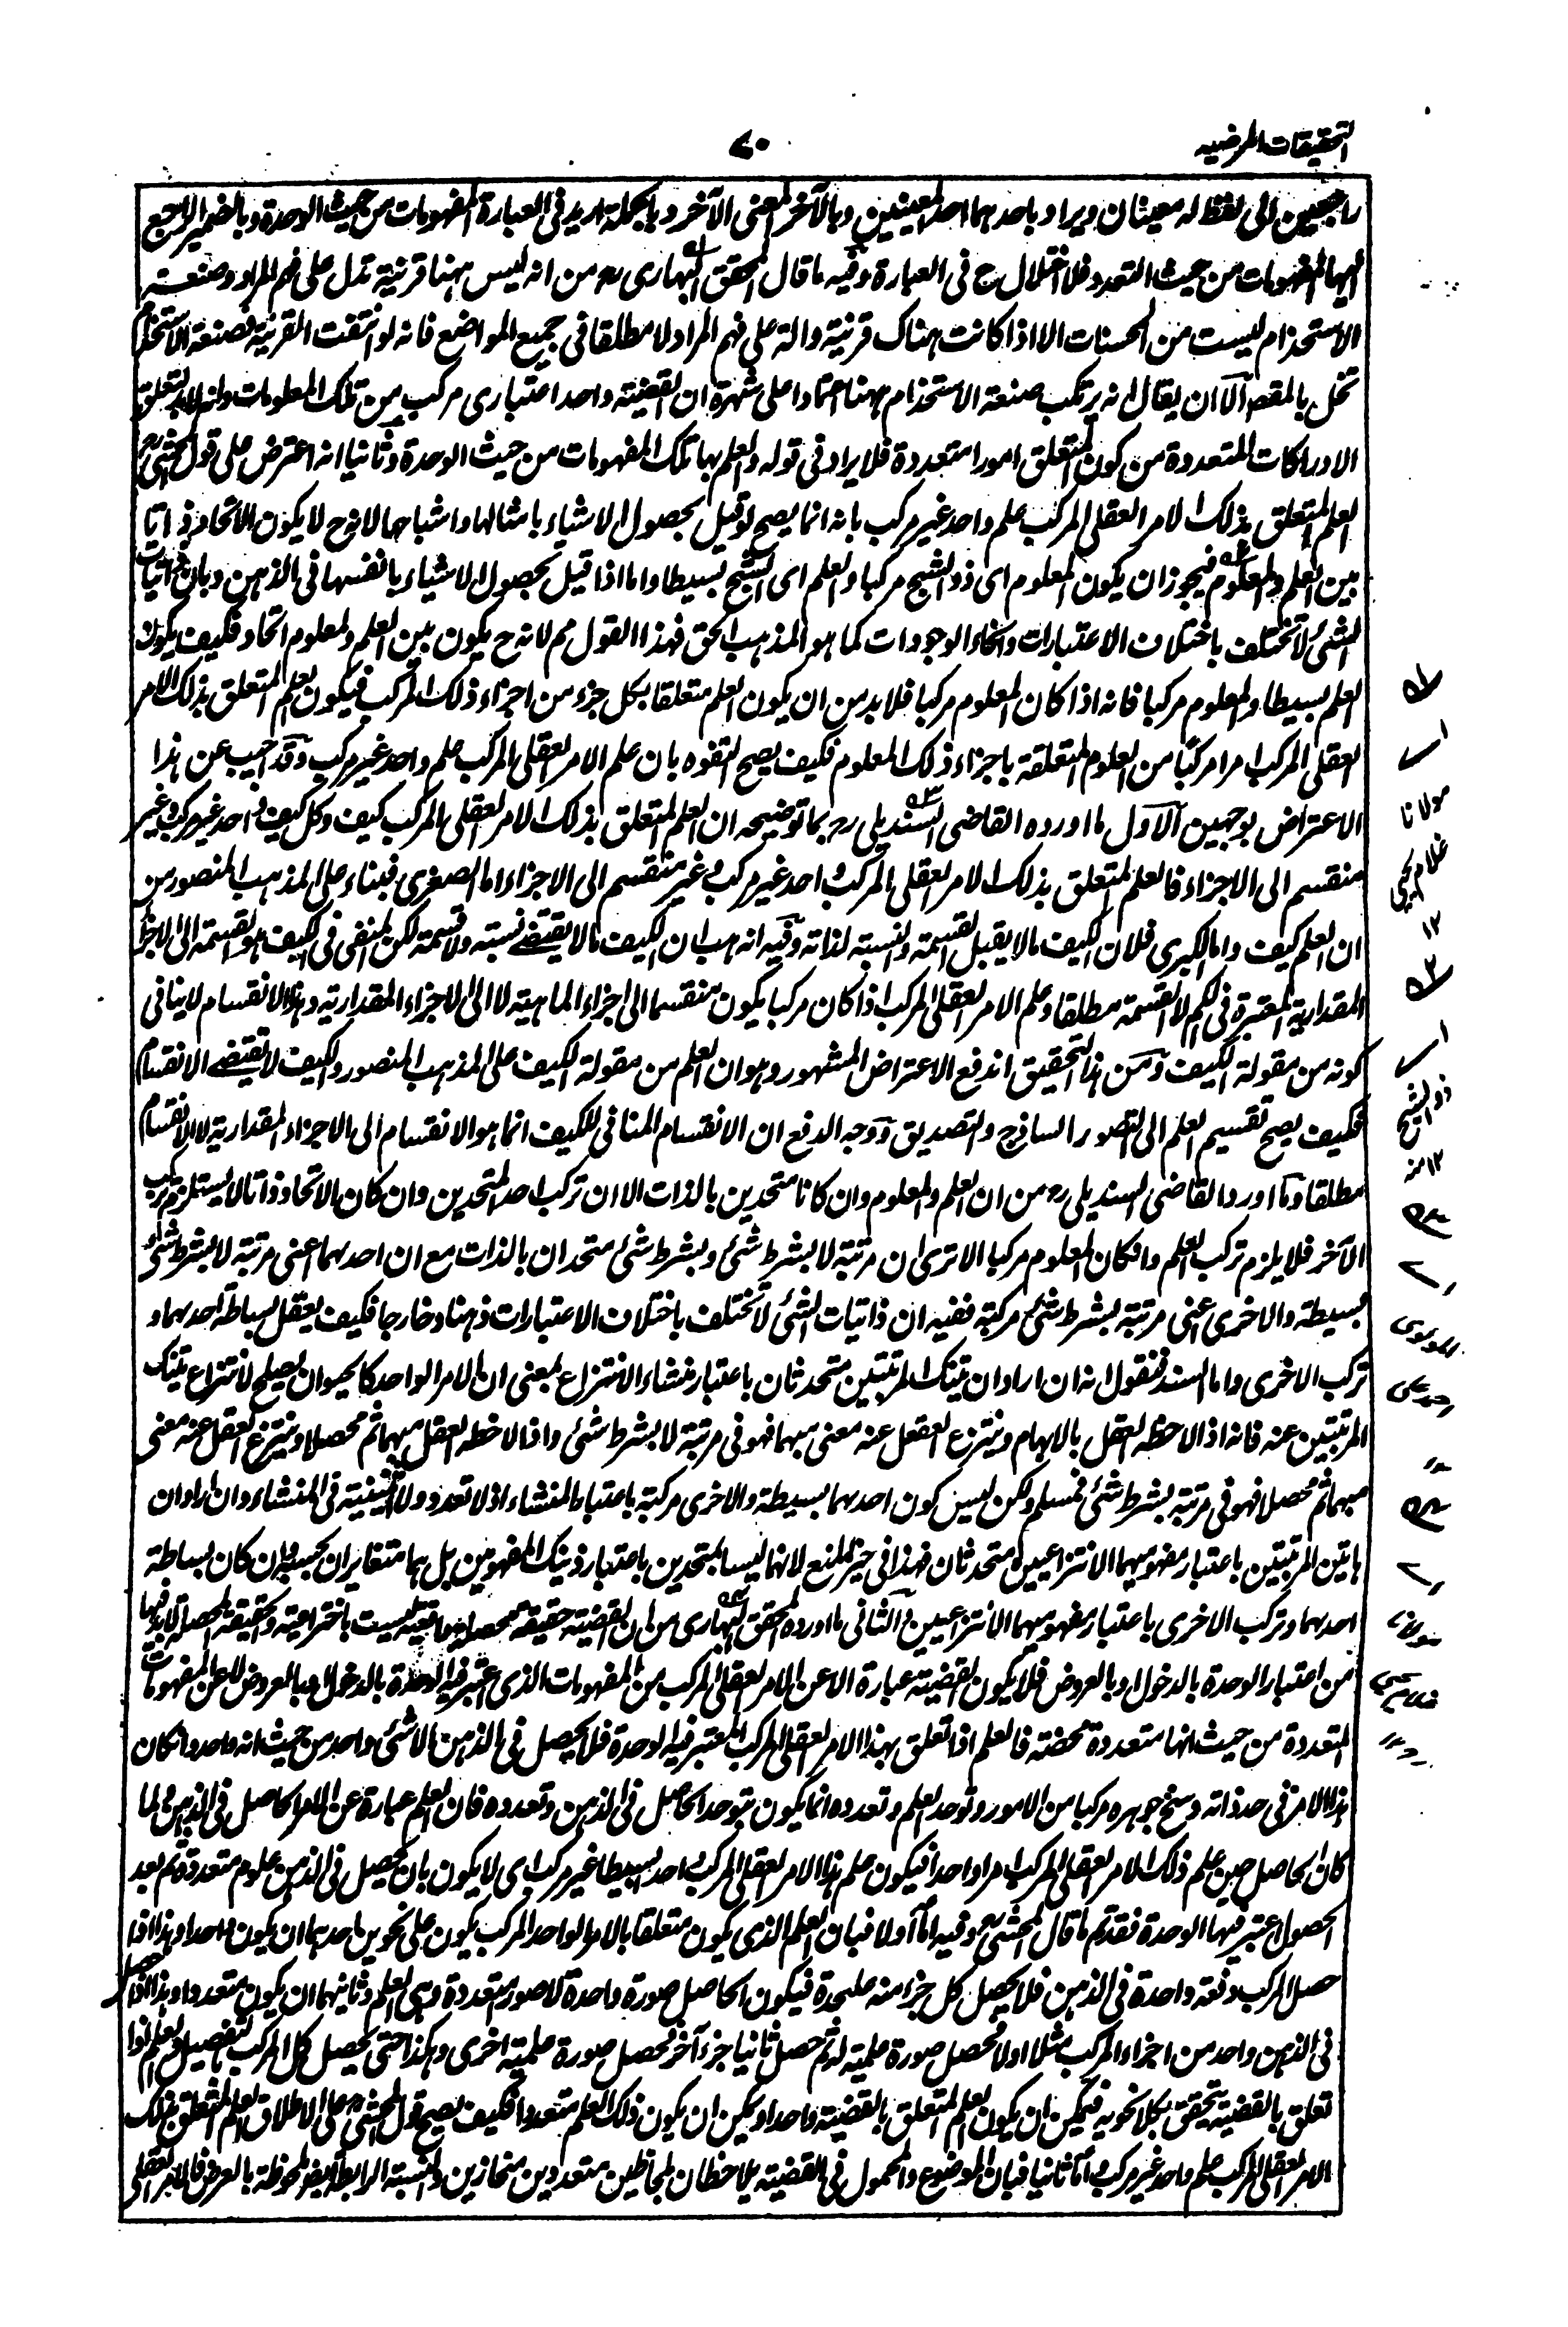 التحقيقات المرضيه
٧٠
راجعين الى لفظ له معنيان ويراد باحدهما احد المعنيين وبالآخر المعنى الآخر وبالجملة اريد فى العبارة المفهومات من حيث الوحدة وبالضمير الراجع
اليها المفهومات من حيث التعدد فلا اختلال ح فى العبارة وفيه ما قال المحقق البهارى رح من انه ليس ههنا قرنية تدل على فهم المراد وصنعة
الاستخدام ليست من المحسنات الا اذا كانت هناك قرنية دالة على فهم المراد لا مطلقا فى جميع المواضع فانه لو انتفت القرنية فصنعة الاستخدام
تخل بالمقصد الا ان يقال انه يرتكب صنعة الاستخدام ههنا اعتمادا على شهرة ان القضية واحد اعتبارى مركب من تلك المعلومات وانه لابد لتعلق
الادراكات المتعددة من كون المتعلق امورا متعددة فلا يراد فى قوله والعلم بها تلك المفهومات من حيث الوحدة وثانيا انه اعترض على قول المحشى رح
العلم المتعلق بذلك الامر العقلى المركب علم واحد غير مركب بانه انما يصح لو قيل بحصول الاشياء بامثالها واشباحها لانه ح لا يكون الاتحاد ذاتا
بين العلم والمعلوم فيجوز ان يكون المعلوم اى ذو الشبح مركبا والعلم اى الشبح بسيطا واما اذا قيل بحصول الاشياء بانفسها فى الذهن وبان ذاتيات
الشئ لا تختلف باختلاف الاعتبارات وانحاء الوجودات كما هو المذهب الحق فهذا القول مم لانه ح يكون بين العلم والمعلوم اتحاد فكيف يكون
العلم بسيطا والمعلوم مركبا فانه اذا كان المعلوم مركبا فلا بد من ان يكون العلم متعلقا بكل جزء من اجزاء ذلك المركب فيكون العلم المتعلق بذلك الامر
العقلى المركب امرا مركبا من العلوم المتعلقة باجزاء ذلك المعلوم فكيف يصح التفوه بان علم الامر العقلى المركب علم واحد غير مركب وقد اجيب عن هذا
الاعتراض بوجهين الاول ما اورده القاضى السنديلى رح بما توضيحه ان العلم المتعلق بذلك الامر العقلى المركب كيف وكل كيف واحد غير مركب وغير
منقسم الى الاجزاء فالعلم المتعلق بذلك الامر العقلى المركب واحد غير مركب وغير منقسم الى الاجزاء اما الصغرى فبناء على المذهب المنصور من
ان العلم كيف واما الكبرى فلان الكيف ما لا يقبل القسمة والنسبة لذاته وفيه انه هب ان الكيف ما لا يقتضے نسبته ولا قسمة لكن المنفى فى الكيف هو القسمة الى الاجزاء
المقدارية المعتبرة فى الكم لا القسمة مطلقا وعلم الامر العقلى المركب اذا كان مركبا يكون منقسما الى اجزاء الماهية لا الى الاجزاء المقدارية وهذا الانقسام لا ينافى
كونه من مقولة الكيف ومن هذا التحقيق اندفع الاعتراض المشهور وهو ان العلم من مقولة الكيف على المذهب المنصور والكيف لا يقتضے الانقسام
فكيف يصح تقسيم العلم الى التصور الساذج والتصديق ووجه الدفع ان الانقسام المنافى للكيف انما هو الانقسام الى الاجزاء المقدارية لا الانقسام
مطلقا وما اورد القاضى السنديلى رح من ان العلم والمعلوم وان كانا متحدين بالذات الا ان تركب احد المتحدين وان كان الاتحاد ذاتا لا يستلزم تركب
الآخر فلا يلزم تركب العلم وان كان المعلوم مركبا الا ترى ان مرتبة لا بشرط شئ وبشرط شئ متحدان بالذات مع ان احدهما اعنى مرتبة لا بشرط شئ
بسيطة والاخرى اعنى مرتبة بشرط شئ مركبة ففيه ان ذاتيات الشئ لا تختلف باختلاف الاعتبارات ذهنا وخارجا فكيف يعقل بساطة احدهما و
تركب الاخرى واما السند فنقول انه ان اراد ان تينك المرتبتين متحدثان باعتبار منشاء الانتزاع بمعنى ان الامر الواحد كالحيوان يصلح لانتزاع تينك
المرتبتين عنه فانه اذا لاحظه العقل بالابهام وينتزع العقل عنه معنى مبهما فهو فى مرتبة لا بشرط شئ واذا لاحظه العقل مبهما ثم محصلا وينتزع العقل عنه معنى
مبهما ثم محصلا فهو فى مرتبة بشرط شئ فمسلم ولكن ليس كون احدهما بسيطة والاخرى مركبة باعتبار المنشاء اذ لا تعدد ولا اثنينية فى المنشاء وان اراد ان
هاتين المرتبتين باعتبار مفهوميهما الانتزاعيين متحدثان فهذا فى حيز المنع لانهما ليسا بمتحدين باعتبار ذينك المفهومين بل هما متغايران بحسبهما وان كان بساطة
احدهما وتركب الاخرى باعتبار مفهوميهما الانتزاعيين والثانى ما اورده المحقق البهارى من ان القضية حقيقة محصلة واقعية ليست باختراعية والحقيقة المحصلة لابد فيها
من اعتبار الوحدة بالدخول او بالعروض فلا يكون القضية عبارة الا عن الامر العقلى المركب من المفهومات الذى اعتبر فيه الوحدة بالدخول او بالعروض لا عن المفهومات
المتعددة من حيث انها متعددة محضة فالعلم اذا تعلق بهذا الامر العقلى المركب المعتبر فيه الوحدة فلا يحصل فى الذهن الا شئ واحد من حيث انه واحد وان كان
هذا الامر فى حد ذاته وسنخ جوهره مركبا من الامور وتوحد العلم وتعدده انما يكون بتوحد الحاصل فى الذهن وتعدده فان العلم عبارة عن الامر الحاصل فى الذهن ولما
كان الحاصل حين علم ذلك الامر العقلى المركب امرا واحدا فيكون علم هذا الامر العقلى المركب واحد بسيطا غير مركب اى لا يكون بان يحصل فى الذهن علوم متعددة ثم بعد
الحصول اعتبر فيها الوحدة فقد تم ما قال المحشى رح وفيه اما اولا فبان العلم الذى يكون متعلقا بالامر الواحد المركب يكون على نحوين احدهما ان يكون واحدا وهذا اذا
حصل المركب دفعة واحدة فى الذهن فلا يحصل كل جزء منه علىحدة فيكون الحاصل صورة واحدة لا صور متعددة وهى العلم وثانيهما ان يكون متعددا وهذا اذا حصل
فى الذهن واحد من اجزاء المركب مثلا اولا فحصل صورة علمية له ثم حصل ثانيا جزء آخر فحصل صورة علمية اخرى وهكذا حتى يحصل كل المركب بالتفصيل والعلم اذا
تعلق بالقضية يتحقق بكلا نحويه فيمكن ان يكون العلم المتعلق بالقضية واحدا ويمكن ان يكون ذلك العلم متعددا فكيف يصح قول المحشى رح على الاطلاق العلم المتعلق بذلك
الامر العقلى المركب علم واحد غير مركب واما ثانيا فبان الموضوع والمحمول فى القضية يلاحظان بلحاظين متعددين منحازين والنسبة الرابطة ايضا ملحوظة بالعرض فالامر العقلى
له
اے
مولانا
غلام يحيى
١٢
٢ه
اے
ذو الشبح
١٢ منه
٣ه
اے
المولوى
احمد على
١٢
٤ه
اے
مولانا
غلام يحيى